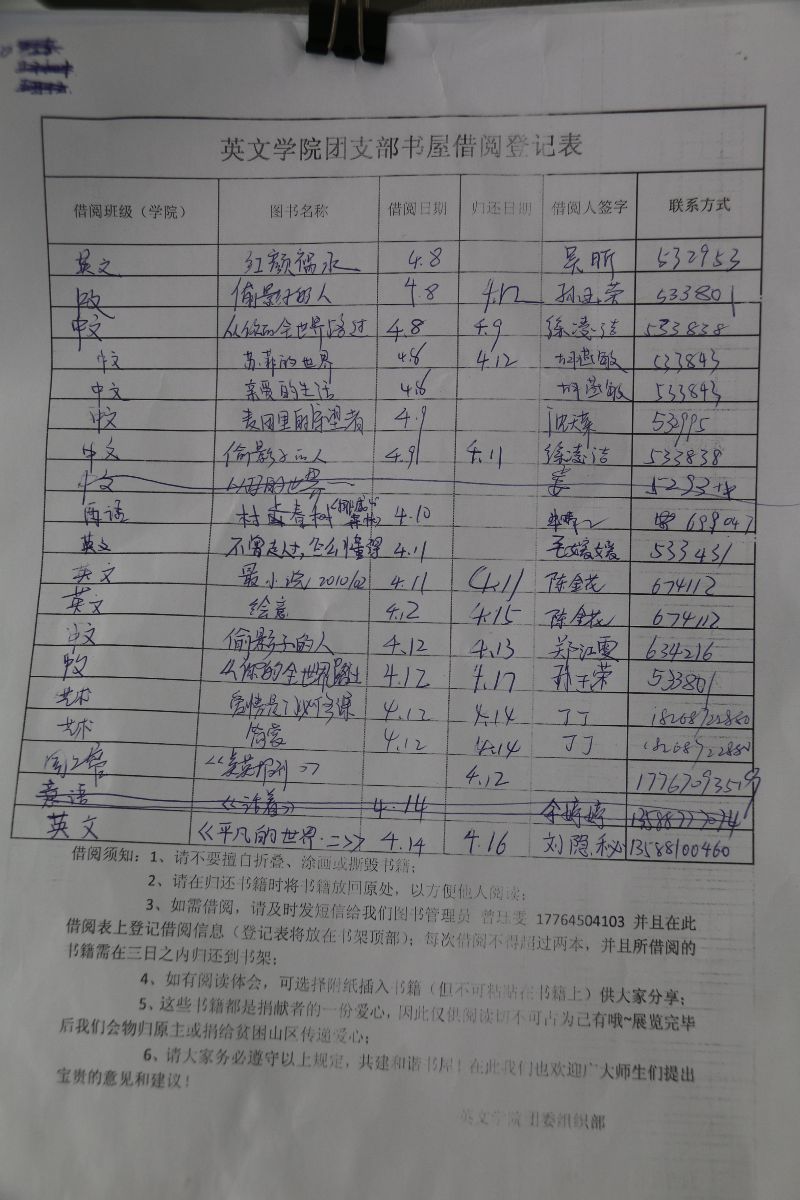 英文学院团支部书屋借阅登记表
借阅班级（学院） 图书名称 借阅日期 归还日期 借阅人签字 联系方式
英文 红颜祸水 4.8 吴昕 532953
偷影子的人 4.8 4.12 533801
中文 从你的全世界路过 4.8 4.9 徐凌洁 533838
中文 苏菲的世界 4.8 4.12 533843
中文 亲爱的生活 4.8 533843
中文 麦田里的守望者 4.9 53995
中文 偷影子的人 4.9 4.11 徐凌洁 533838
中文
西语 村上春树 4.10 699047
英文 不曾走过，怎么懂得 4.11 毛媛媛 533431
英文 最小说 2010/02 4.11 4.11 陈金花 674112
英文 绘意 4.12 4.15 陈金花 674112
中文 偷影子的人 4.12 4.13 郑江雯 634216
从你的全世界路过 4.12 4.17 533801
艺术 爱情是门必修课 4.12 4.14 丁丁 18268922880
艺术 简爱 4.12 4.14 丁丁 18268922880
4.12
《活着》 4.14 余婷婷
英文 《平凡的世界·二》 4.14 4.16 刘隐秘 13588100460
借阅须知：1、请不要擅自折叠、涂画或撕毁书籍；
2、请在归还书籍时将书籍放回原处，以方便他人阅读；
3、如需借阅，请及时发短信给我们图书管理员 曾珏雯 17764504103 并且在此
借阅表上登记借阅信息（登记表将放在书架顶部）；每次借阅不得超过两本，并且所借阅的
书籍需在三日之内归还到书架；
4、如有阅读体会，可选择附纸插入书籍（但不可粘贴在书籍上）供大家分享；
5、这些书籍都是捐献者的一份爱心，因此仅供阅读切不可占为己有哦~展览完毕
后我们会物归原主或捐给贫困山区传递爱心；
6、请大家务必遵守以上规定，共建和谐书屋！在此我们也欢迎广大师生们提出
宝贵的意见和建议！
英文学院团委组织部